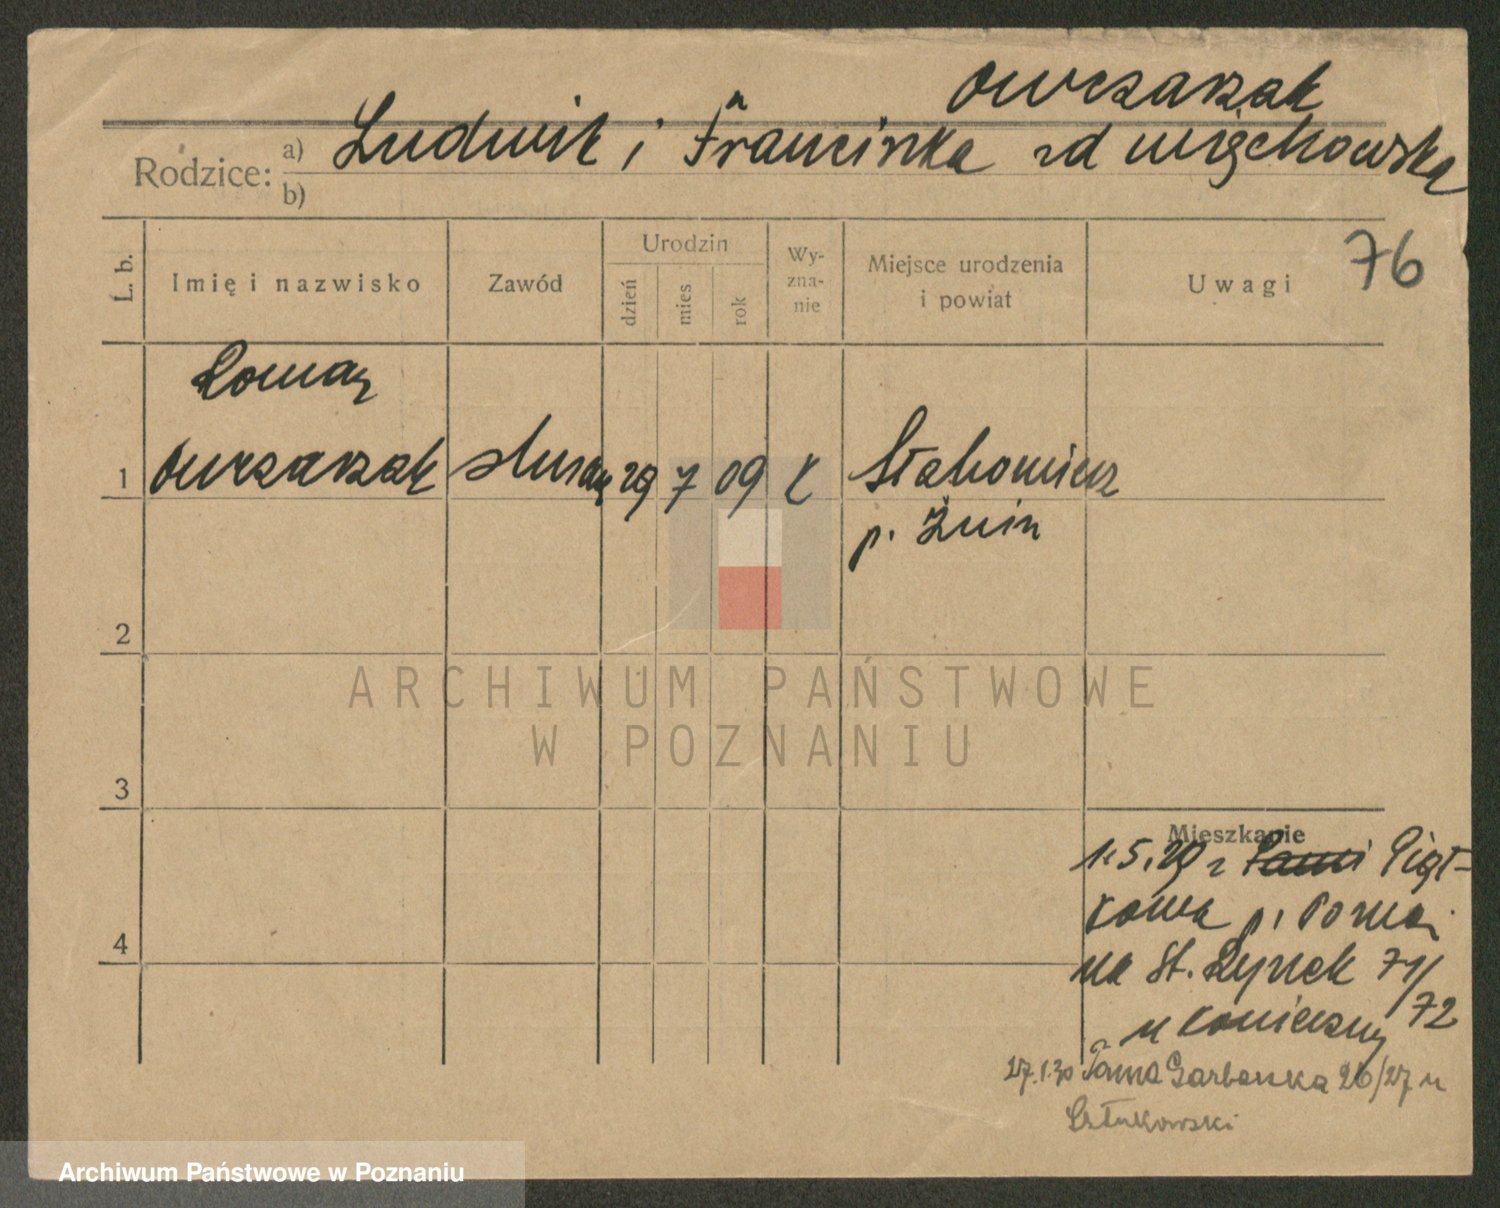 Owczarzak
Rodzice: a) Ludwik i Franciszka zd
b)
76
L. b.
Imię i nazwisko
Zawód
Urodzin
dzień
mies
rok
Wy-
zna-
nie
Miejsce urodzenia
i powiat
Uwagi
Roman
1 Owczarzak ślusarz 29 7 09 k
p. Żnin
2
3
4
Mieszkanie
1.5.29 z Piąt-
kowa p. Poznań
na St. Rynek 71/
72
u Konieczny
27.1.30 Tama Garbarska 26/27 u
ARCHIWUM PAŃSTWOWE
W POZNANIU
Archiwum Państwowe w Poznaniu